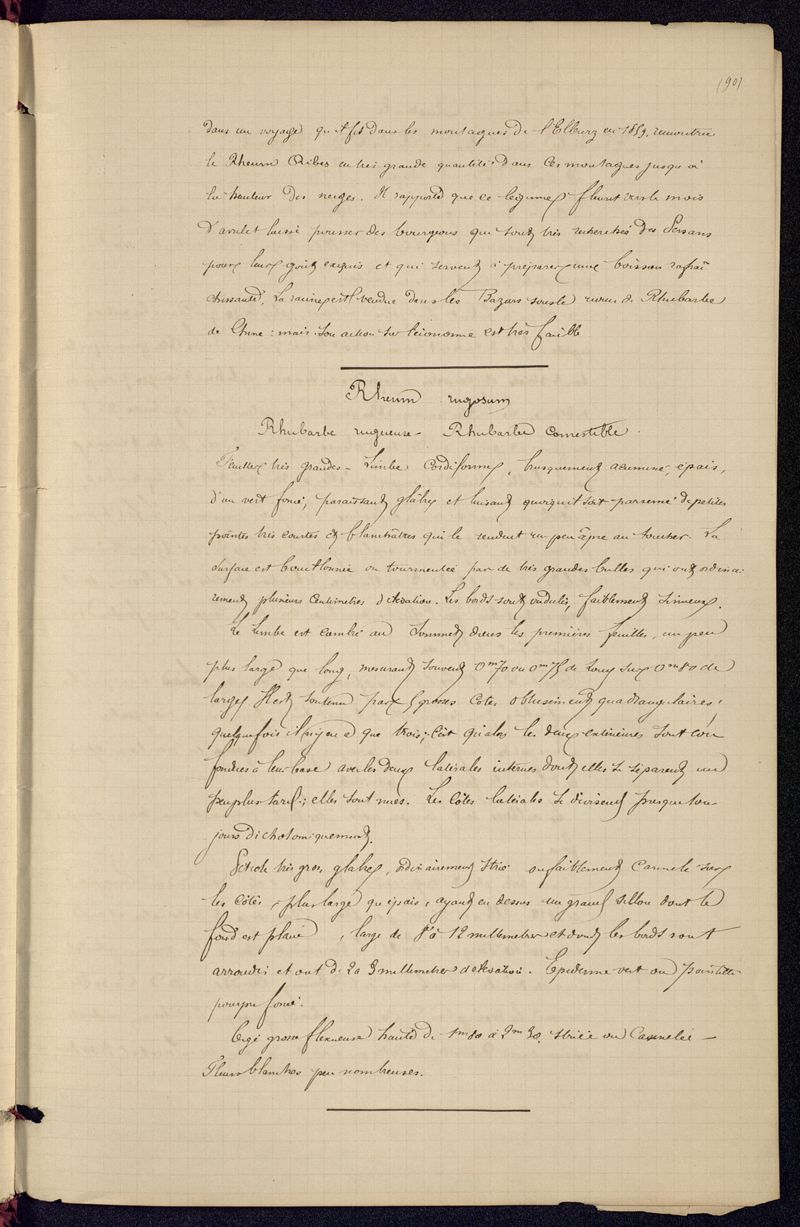 (90)
dans un voyage qu'il fit dans les montagnes de l'Elburz en 1859, rencontra
le Rheum Ribes en très grande quantité dans ces montagnes jusqu'à
la hauteur des neiges. Il rapporte que ce légume fleurit vers le mois
d'avril et laisse pousser des bourgeons qui sont très recherchés des Persans
pour leur goût exquis et qui servent à préparer une boisson rafraî
chissante. La racine est vendue dans les Bazars sous le nom de Rhubarbe
de Chine : mais son action sur l'économie est très faible
Rheum rugosum
Rhubarbe rugueuse - Rhubarbe comestible.
Feuilles très grandes - Limbe cordiforme, brusquement acuminé, épais,
d'un vert foncé, paraissant glabre et luisant quoiqu'il soit parsemé de petites
pointes très courtes et blanchâtres qui le rendent un peu âpre au toucher. La
surface est bouillonnée ou tourmentée par de très grandes bulles qui ont ordinai
rement plusieurs centimètres d'élévation. Les bords sont ondulés, faiblement sinueux.
Le limbe est cambré au sommet dans les premières feuilles, un peu
plus large que long, mesurant souvent 0m70 ou 0m75 de long sur 0m80 de
large. Il est soutenu par 5 grosses côtes obtusément quadrangulaires;
quelquefois il n'y en a que trois; c'est qu'alors les deux extérieures sont con
fondues à leur base avec les deux latérales internes dont elles se séparent un
peu plus tard; elles sont nues. Les côtes latérales se divisent presque tou
jours dichotomiquement.
Pétiole très gros, glabre, ordinairement strié ou faiblement cannelé sur
les côtés, plus large qu'épais, ayant en dessus un grand sillon dont le
fond est plane, large de 8 à 12 millimètres et dont les bords sont
arrondis et ont de 2 à 3 millimètres d'élévation. Epiderme vert ou pointillé
pourpre foncé.
Tige grosse flexueuse haute de 1m80 à 2m30, striée ou cannelée -
Fleurs blanches peu nombreuses.